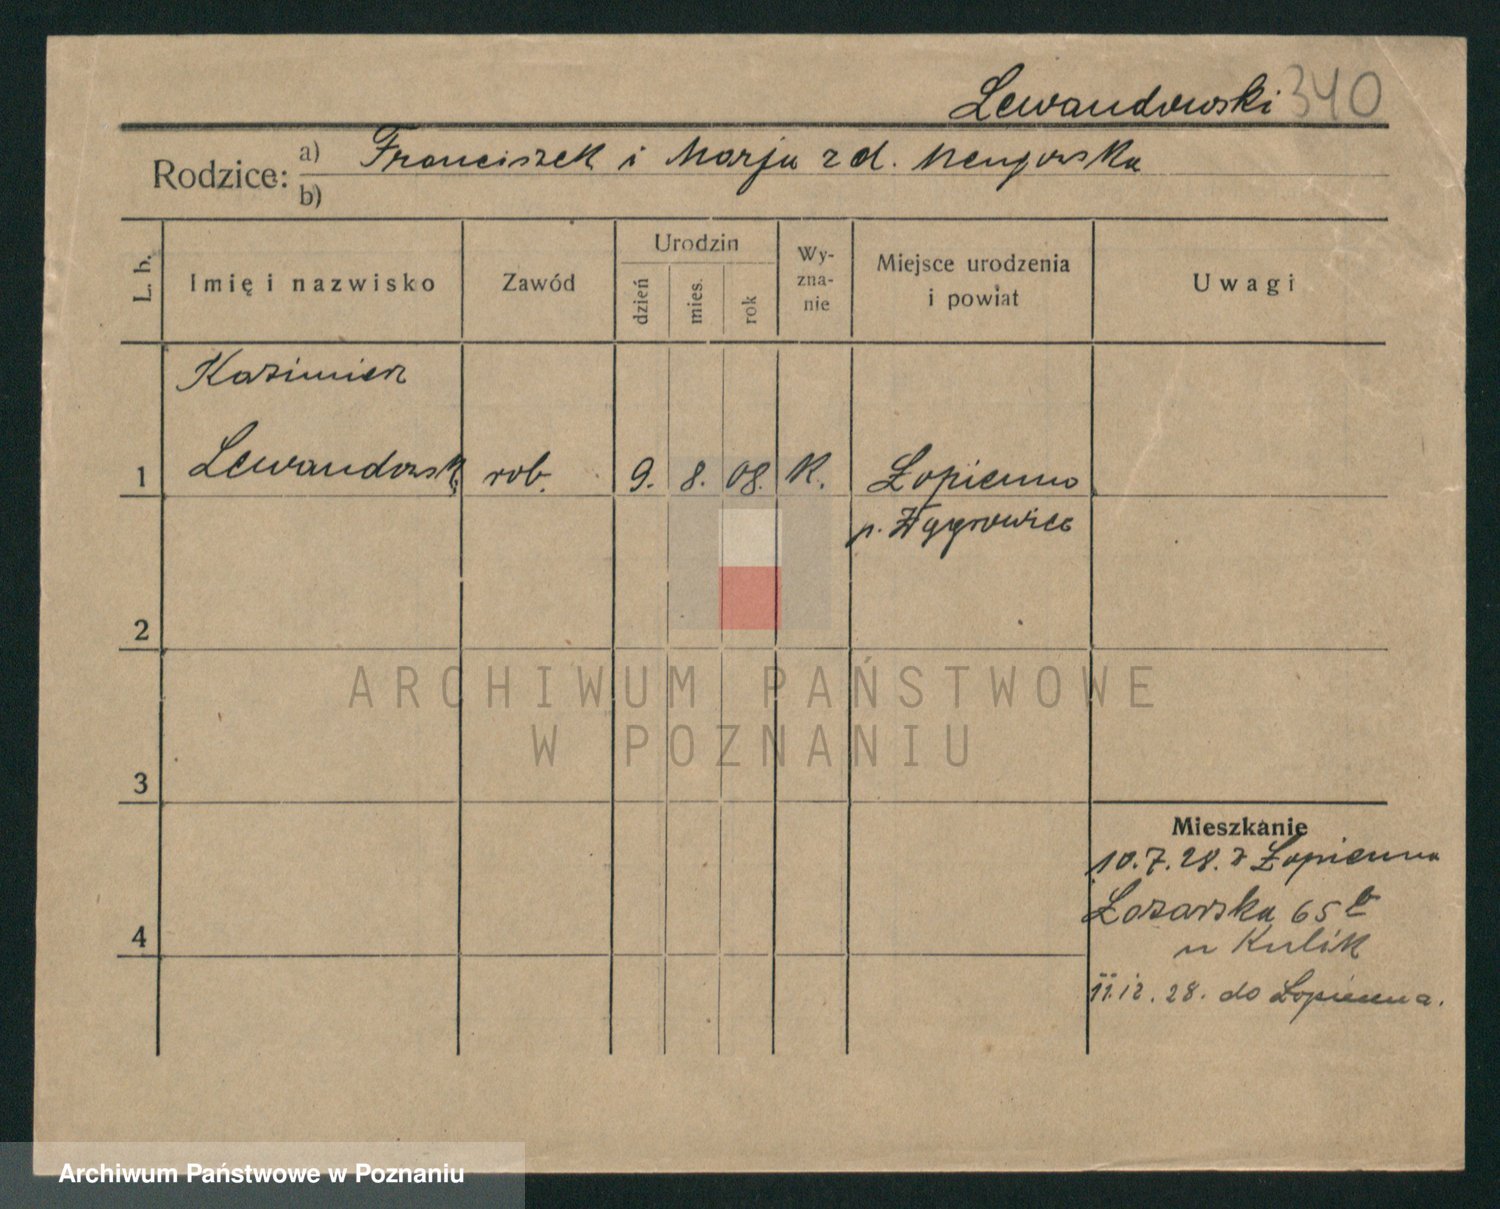 Lewandowski 340
Rodzice: a) Franciszek i Marja z d.
b)
L. b.
Imię i nazwisko
Zawód
Urodzin
dzień
mies.
rok
Wy-
zna-
nie
Miejsce urodzenia
i powiat
Uwagi
Kazimierz
1 Lewandowski rob. 9. 8. 08. K. Łopienno
p. Wągrowiec
2
ARCHIWUM PAŃSTWOWE
W POZNANIU
3
Mieszkanie
10.7.28. z Łopienna
Łazarska 65
4
u Kulik
11.12.28. do Łopienna.
Archiwum Państwowe w Poznaniu